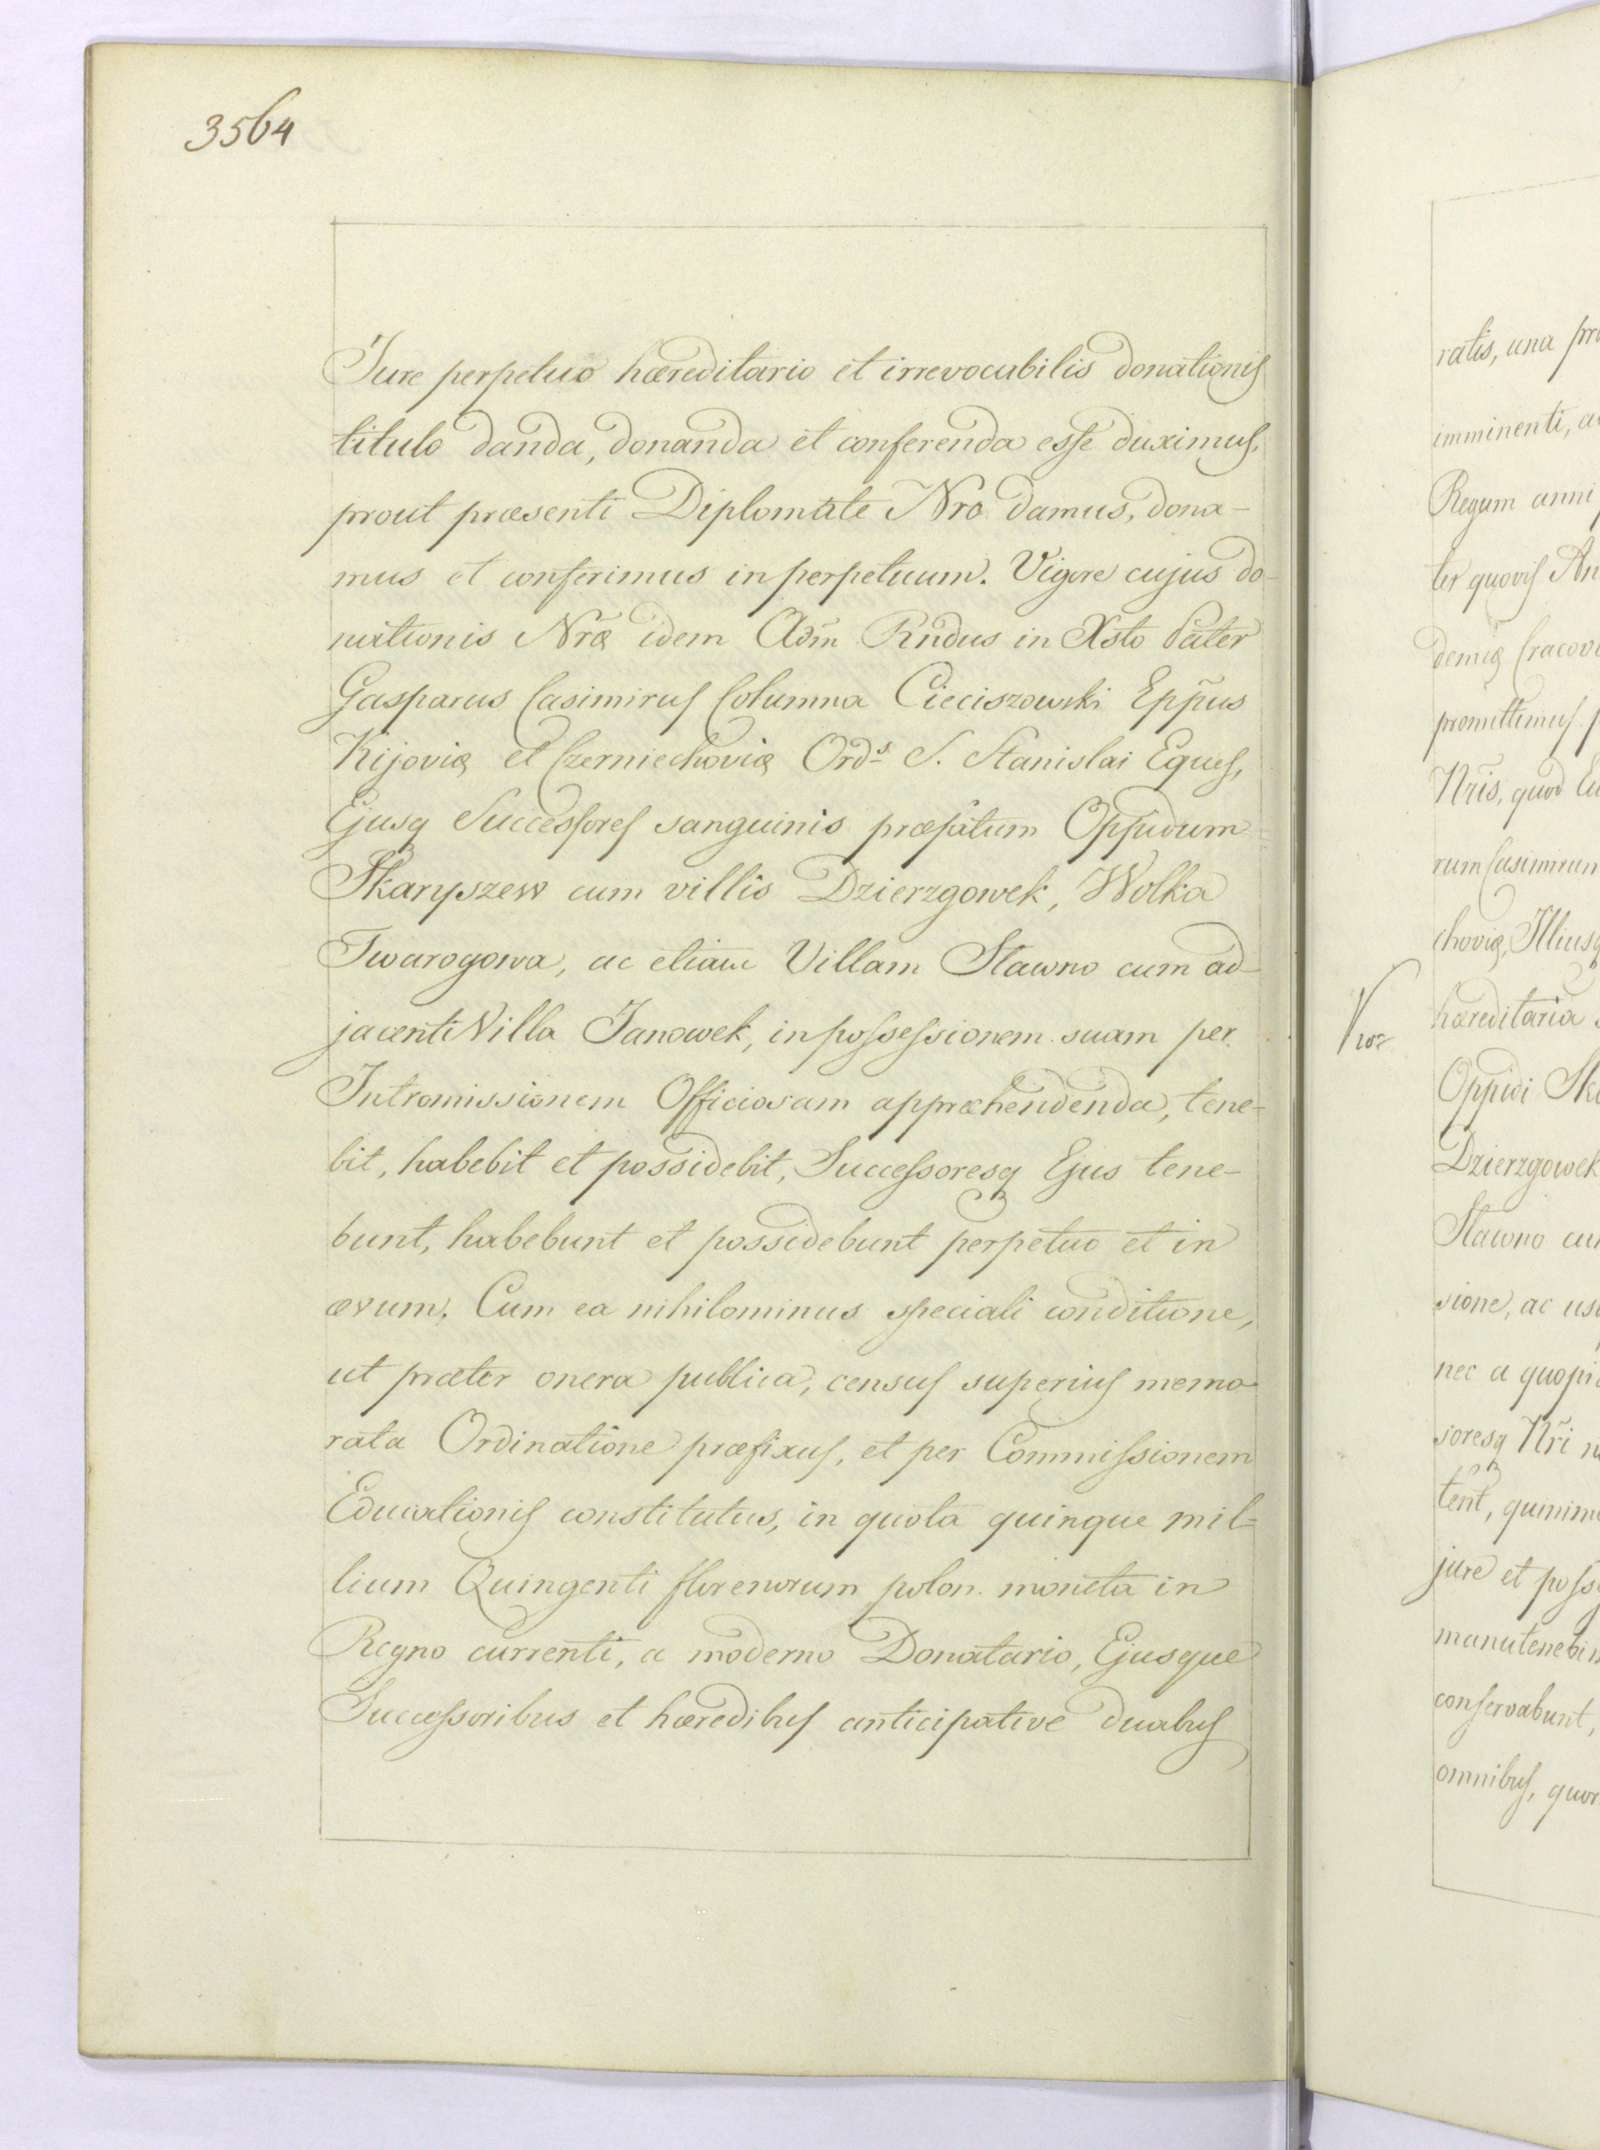 3564
Jure perpetuo hæreditario et irrevocabilis donationis
titulo danda, donanda et conferenda esse duximus,
prout præsenti Diplomate Nro damus, dona-
mus et conferimus in perpetuum. Vigore cujus do-
nationis Nræ idem Adm̃ Rndus in Xsto Pater
Gasparus Casimirus Columna Cieciszowski Epp̃us
Kijoviæ et Czerniechoviæ Ord.s S. Stanislai Eques,
Ejusq Successores sanguinis præfatum Oppidum
Skaryszew cum villis Dzierzgowek, Wolka
Twarogowa, ac etiam Villam Sławno cum ad-
jacenti Villa Janowek, in possessionem suam per
Intromissionem Officiosam appræhendenda, tene-
bit, habebit et possidebit, Successoresq Ejus tene-
bunt, habebunt et possidebunt perpetuo et in
ævum. Cum ea nihilominus speciali conditione,
ut præter onera publica, census superius memo-
rata Ordinatione præfixus, et per Commissionem
Educationis constitutus, in quota quinque mil-
lium Quingenti florenorum polon. moneta in
Regno currenti, a moderno Donatario, Ejusque
Successoribus et hæredibus anticipative duabus
ratis, una
imminenti,
Regum anni
ter quovis
demiæ
promittimus
Nris, quod
rum Casimirum
choviæ, Illiusq
hæreditaria
Oppidi
Dzierzgowek
Sławno
sione, ac
nec a
soresq Nri
tent,
jure et
conservabunt,
omnibus,